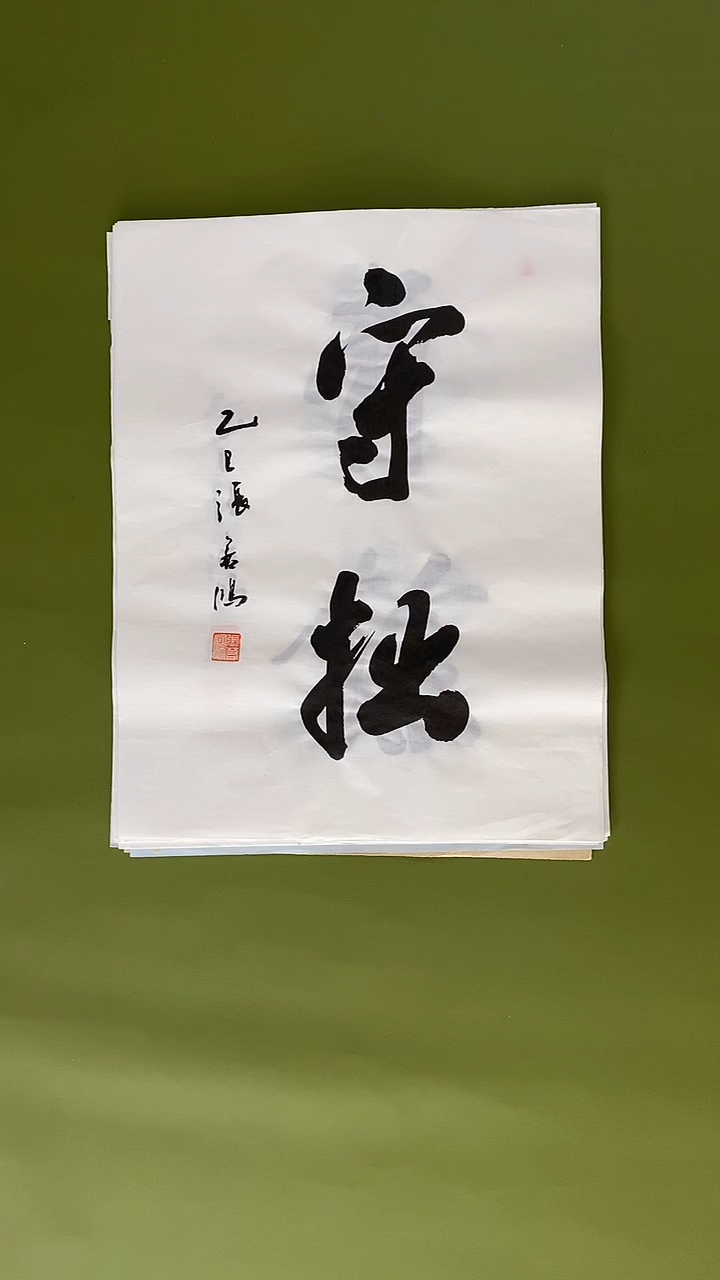 守拙
乙巳張善鴻